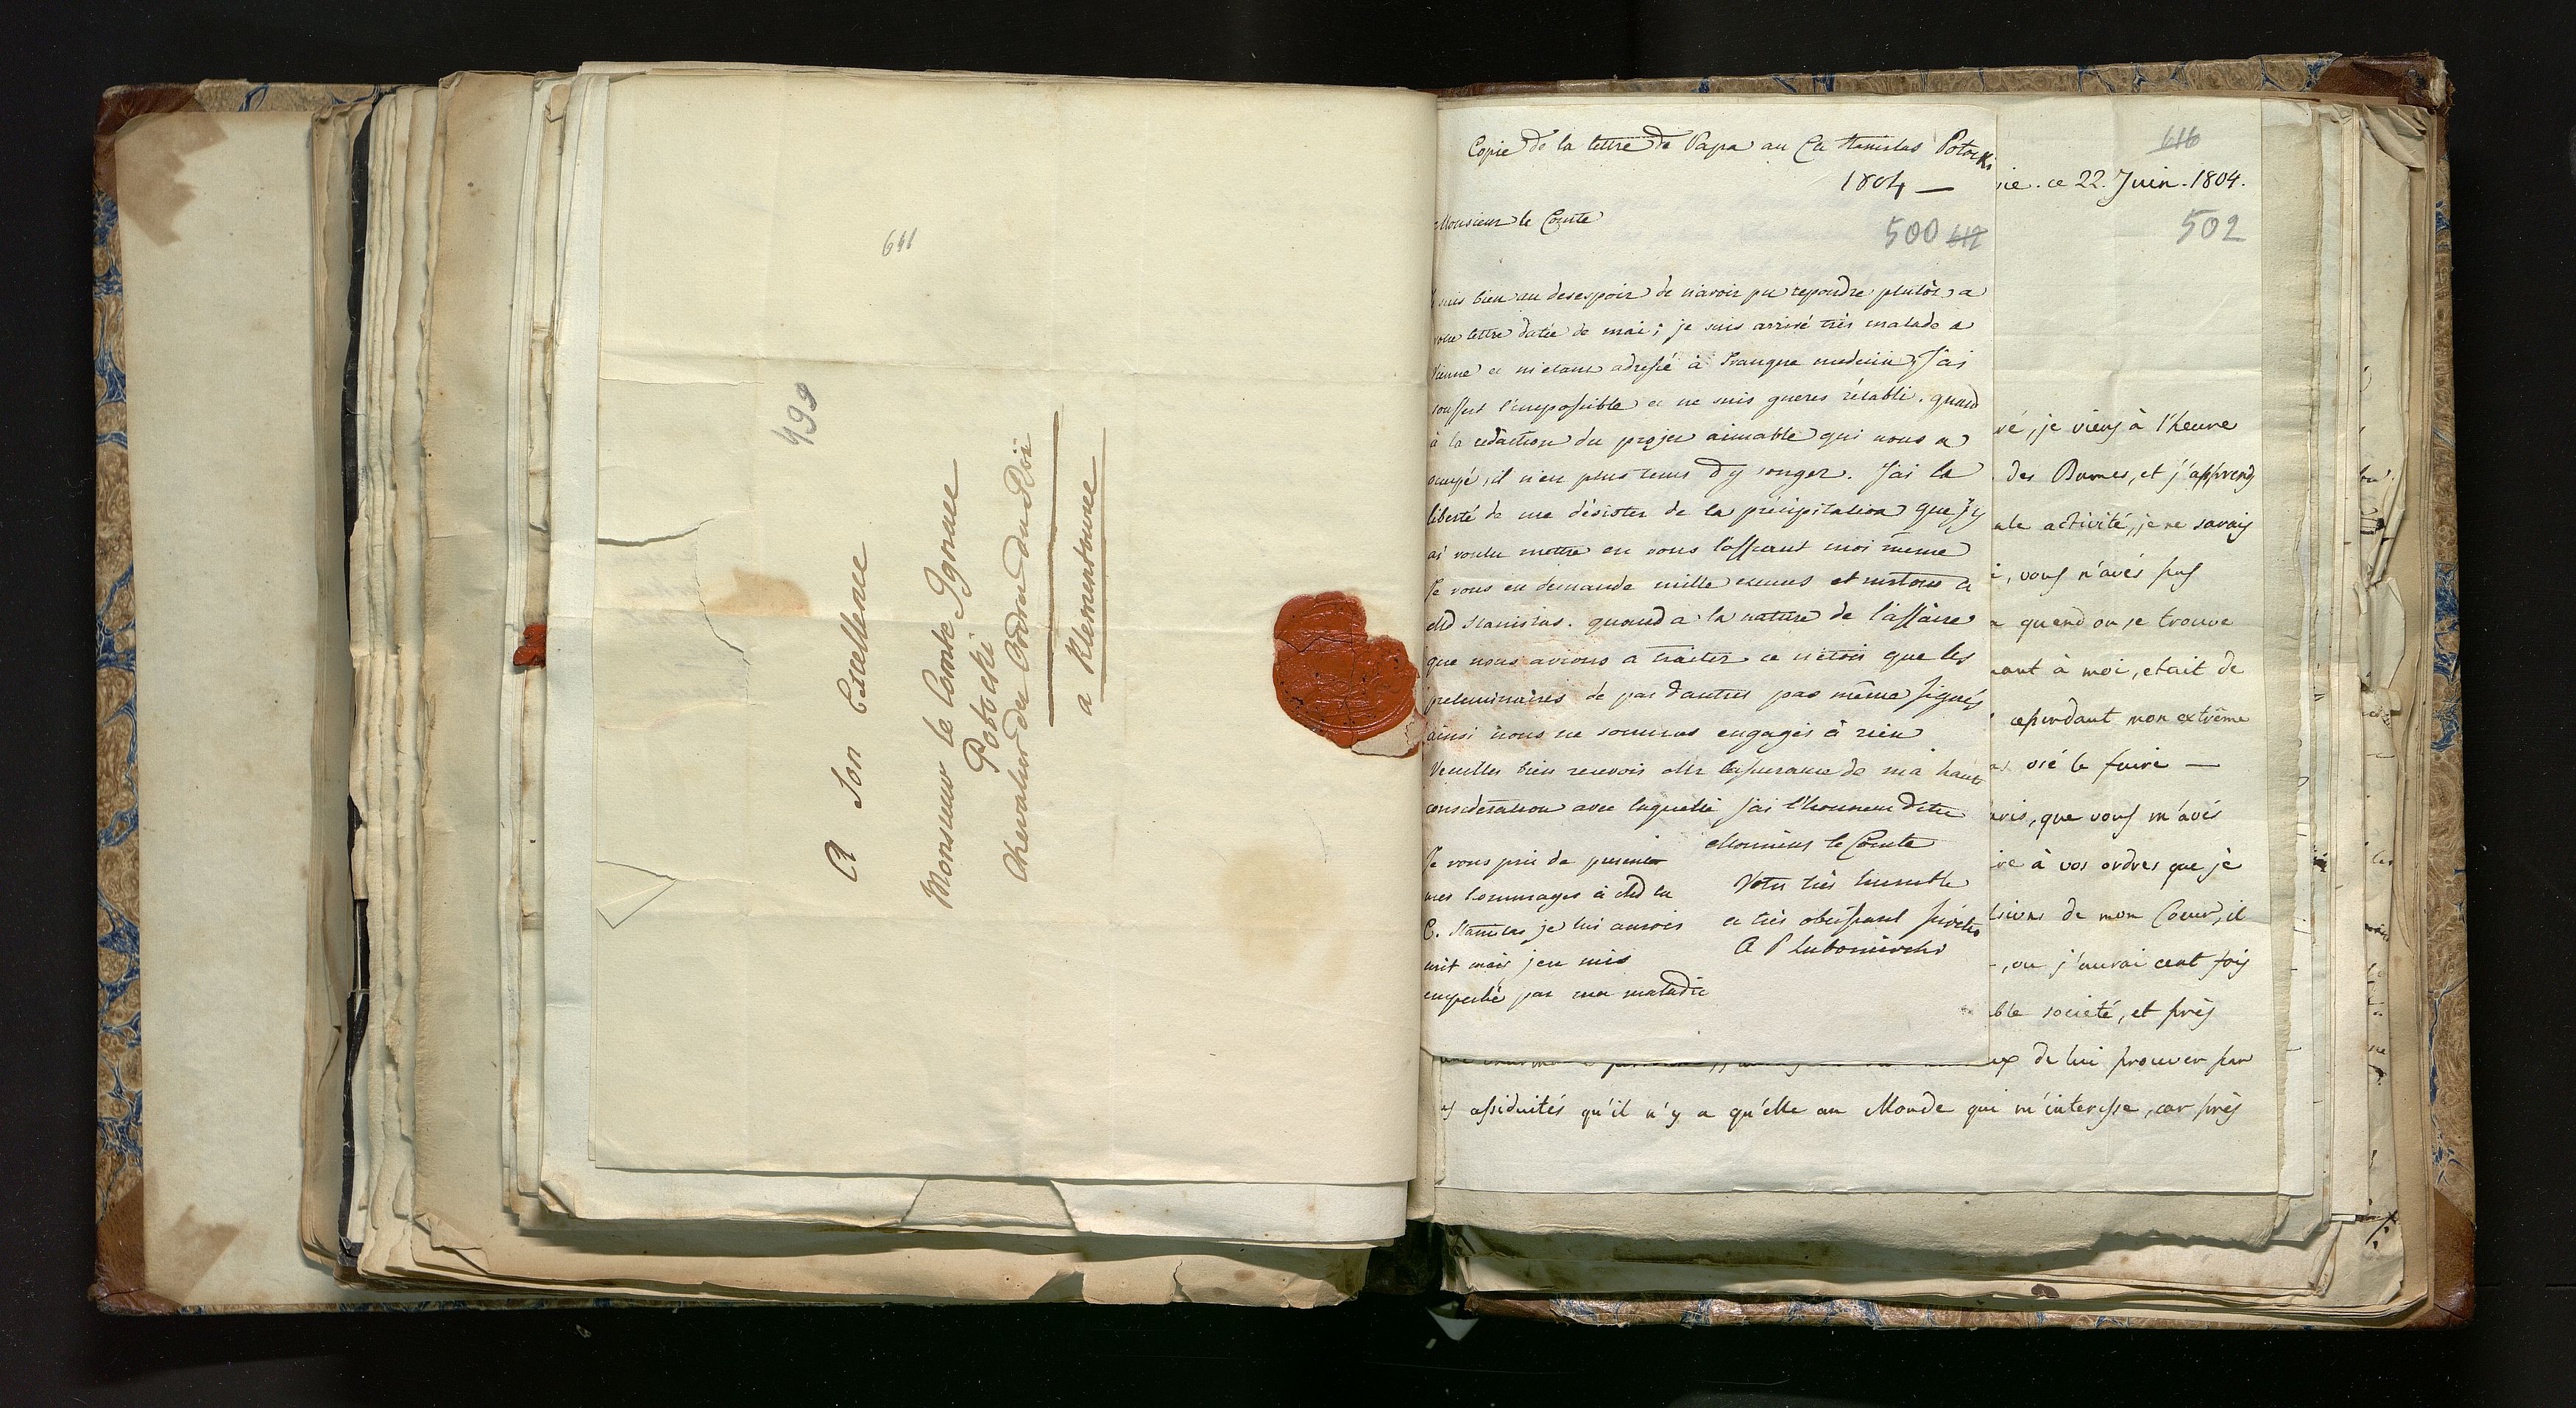 641
499
A Son Excellence
Monsieur le Comte Ignace
Potocki
Chevalier des Ordres du Roi
a Klementowice
Copie de la lettre de Papa au Cte Stanislas Potocki
1804 —
500 612
Monsieur le Comte
suis bien au desespoir de n'avoir pu repondre plutôt a
votre lettre datée de mai; je suis arrivé très malade a
Vienne et m'etant adressé à Franque medecin, J'ai
souffert l'impossible et ne suis gueres rétabli. quand
à la redaction du projet aimable qui nous a
occupé, il n'en plus tems d'y songer. J'ai la
liberté de me désister de la précipitation que j'y
ai voulu mettre en vous l'assurant moi même
Je vous en demande mille excuses et surtout a
Md Stanislas. quand a la nature de l'affaire
que nous avions a traiter ce n'etoit que les
preliminaires de par d'autres pas même signés
ainsi nous ne sommes engagés à rien
Veuillez bien recevoir Mr l'assurance de ma haute
consideration avec laquelle j'ai l'honneur d'etre
Monsieur le Comte
Votre très humble
et très obeissant serviteur
A P Lubomirski
Je vous prie de presenter
mes hommages à Md la
C. Stanislas je lui aurois
ecrit mais j'en suis
empeché par ma maladie
616
ce 22. Juin. 1804.
502
je viens à l'heure
des Dames, et j'apprend
activité, je ne savais
vous n'avés pas
quand on se trouve
à moi, etait de
cependant mon extrême
osé le faire —
que vous m'avés
à vos ordres que je
de mon Coeur, il
ou j'aurai cent fois
société, et près
de lui prouver par
assiduités qu'il n'y a qu'elle au Monde qui m'interesse, car près